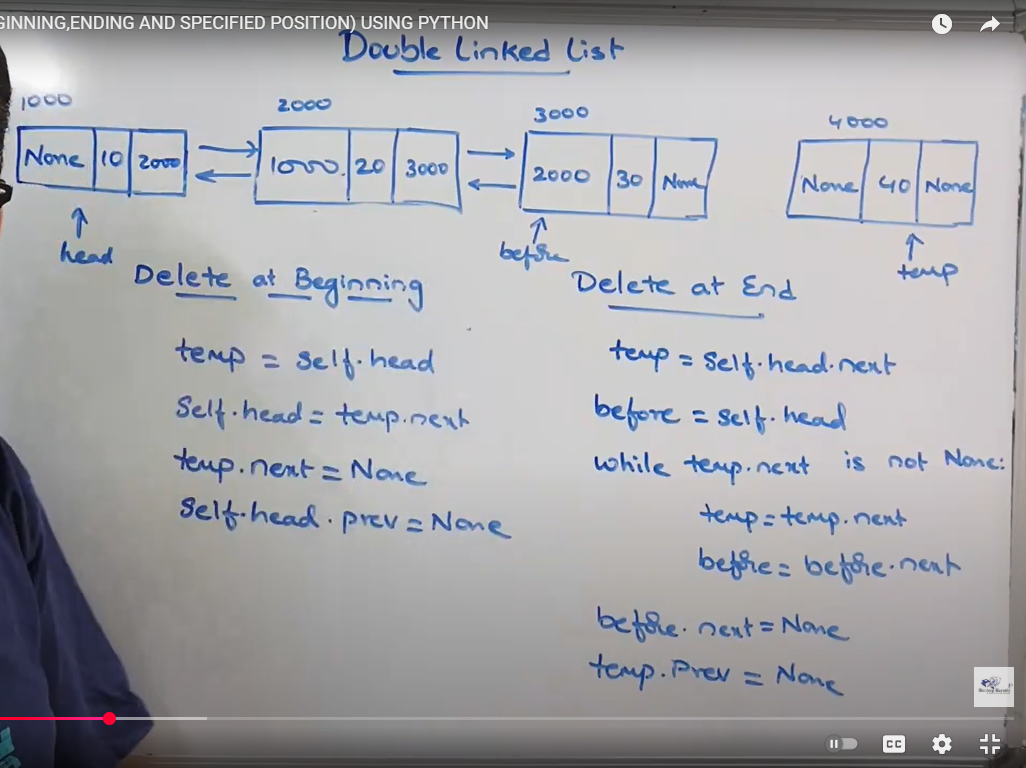 GINNING,ENDING AND SPECIFIED POSITION) USING PYTHON
Double Linked List
1000
2000
3000
4000
None 10 2000
1000. 20 3000
2000 30 None
None 40 None
head
before
temp
Delete at Beginning
temp = self.head
Self.head = temp.next
temp.next = None
Self.head.prev = None
Delete at End
temp = self.head.next
before = self.head
while temp.next is not None:
temp = temp.next
before = before.next
before.next = None
temp.Prev = None
CC